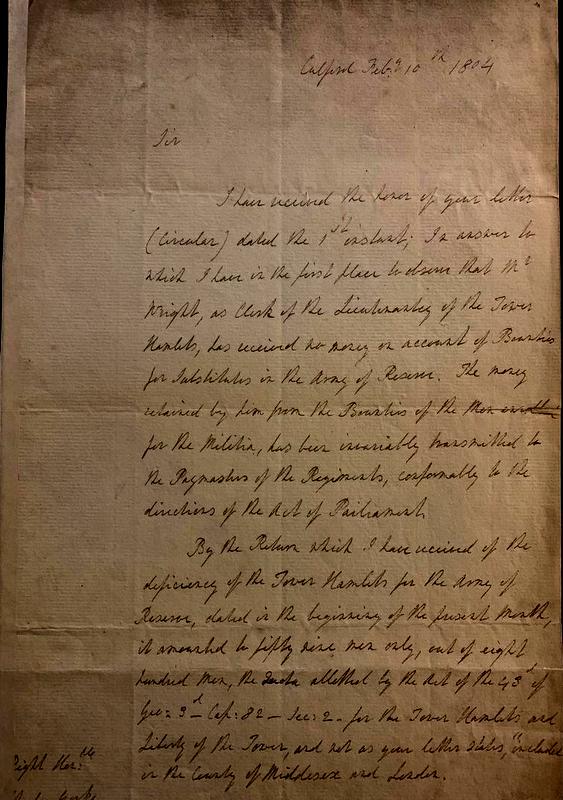 Culford Feb.y 10th 1804
Sir
I have received the honor of your letter
(Circular) dated the 1st instant; In answer to
which I have in the first place to observe that Mr
Wright, as Clerk of the Lieutenantcy of the Tower
Hamlets, has received no money on account of Bounties
for Substitutes in the Army of Reserve. The money
retained by him from the Bounties of the Men enrolled
for the Militia, has been invariably transmitted to
the Paymasters of the Regiments, conformably to the
directions of the Act of Parliament.
By the Return which I have received of the
deficiency of the Tower Hamlets for the Army of
Reserve, dated in the beginning of the present Month,
it amounted to fifty nine men only, out of eight
hundred Men, the Quota allotted by the Act of the 43d of
Geo: 3d - Cap: 82 - Sec: 2 - for the Tower Hamlets and
Liberty of the Tower, and not as your letter states, "included
in the County of Middlesex and London.
Right Hon:ble
Yorke